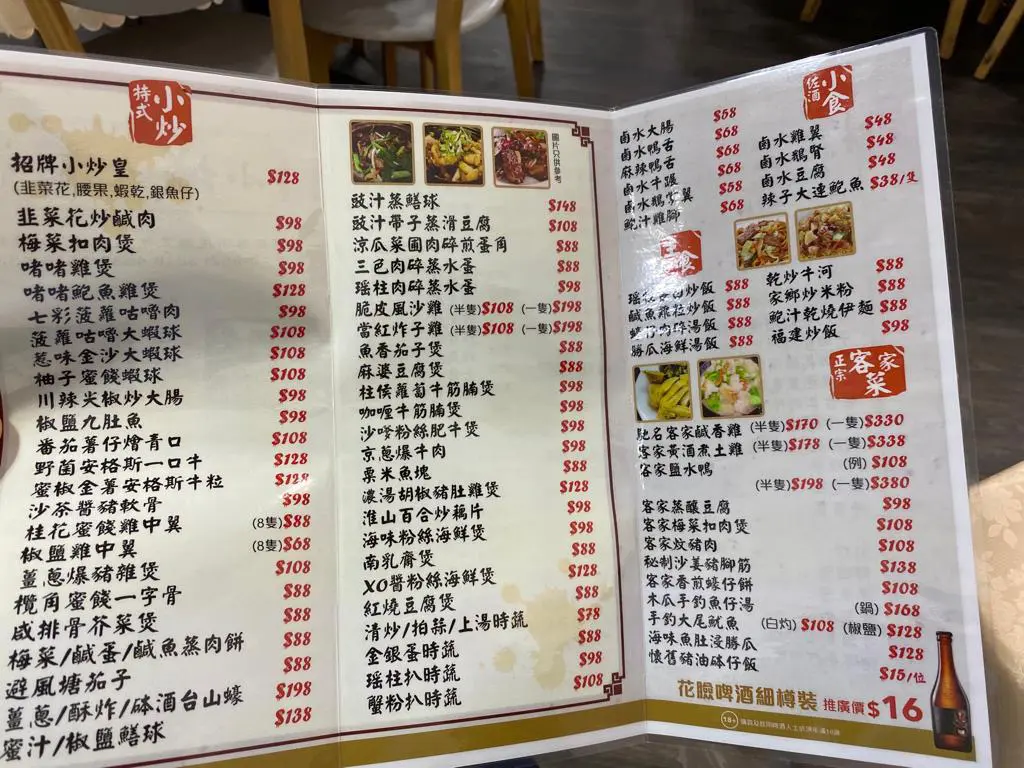 特式
小炒
招牌小炒皇 $128
(韭菜花,腰果,蝦乾,銀魚仔)
韭菜花炒鹹肉 $98
梅菜扣肉煲 $98
啫啫雞煲 $98
啫啫鮑魚雞煲 $128
七彩菠蘿咕嚕肉 $98
菠蘿咕嚕大蝦球 $108
葱味金沙大蝦球 $108
柚子蜜餞蝦球 $108
川辣尖椒炒大腸 $98
椒鹽九肚魚 $98
番茄薯仔燴青口 $108
野菌安格斯一口牛 $128
蜜椒金薯安格斯牛粒 $128
沙茶醬豬軟骨 $98
桂花蜜餞雞中翼 (8隻)$88
椒鹽雞中翼 (8隻)$68
薑葱爆豬雜煲 $108
欖角蜜餞一字骨 $88
咸排骨芥菜煲 $88
梅菜/鹹蛋/鹹魚蒸肉餅 $88
避風塘茄子 $88
薑葱/酥炸/砵酒台山蠔 $198
蜜汁/椒鹽鱔球 $138
圖片只供參考
豉汁蒸鱔球 $148
豉汁帶子蒸滑豆腐 $108
涼瓜菜圃肉碎煎蛋角 $88
三色肉碎蒸水蛋 $88
瑶柱肉碎蒸水蛋 $98
脆皮風沙雞 (半隻)$108 (一隻)$198
當紅炸子雞 (半隻)$108 (一隻)$198
魚香茄子煲 $88
麻婆豆腐煲 $88
柱侯蘿蔔牛筋腩煲 $98
咖喱牛筋腩煲 $98
沙嗲粉絲肥牛煲 $98
京葱爆牛肉 $98
粟米魚塊 $88
濃湯胡椒豬肚雞煲 $128
淮山百合炒藕片 $98
海味粉絲海鮮煲 $98
南乳齋煲 $88
XO醬粉絲海鮮煲 $128
紅燒豆腐煲 $88
清炒/拍蒜/上湯時蔬 $78
金銀蛋時蔬 $88
瑶柱扒時蔬 $98
蟹粉扒時蔬 $108
佐酒
小食
鹵水大腸 $58
鹵水鴨舌 $68
麻辣鴨舌 $68
鹵水牛𦟌 $68
鹵水鵝掌翼 $58
鮑汁雞腳 $68
鹵水雞翼 $48
鹵水鵝腎 $48
鹵水豆腐 $48
辣子大連鮑魚 $38/隻
主食
炒飯 $88
鹹魚雞粒炒飯 $88
肉碎湯飯 $88
勝瓜海鮮湯飯 $88
乾炒牛河 $88
家鄉炒米粉 $88
鮑汁乾燒伊麵 $88
福建炒飯 $98
正宗
客家菜
馳名客家鹹香雞 (半隻)$170 (一隻)$330
客家黃酒煮土雞 (半隻)$178 (一隻)$338
客家鹽水鴨 (例)$108
(半隻)$198 (一隻)$380
客家蒸釀豆腐 $98
客家梅菜扣肉煲 $108
客家炆豬肉 $108
秘制沙姜豬腳筋 $138
客家香煎蠔仔餅 $108
木瓜手釣魚仔湯 (鍋)$168
手釣大尾魷魚 (白灼)$108 (椒鹽)$128
海味魚肚浸勝瓜 $128
懷舊豬油砵仔飯 $15/位
花臉啤酒細樽裝 推廣價$16
18+